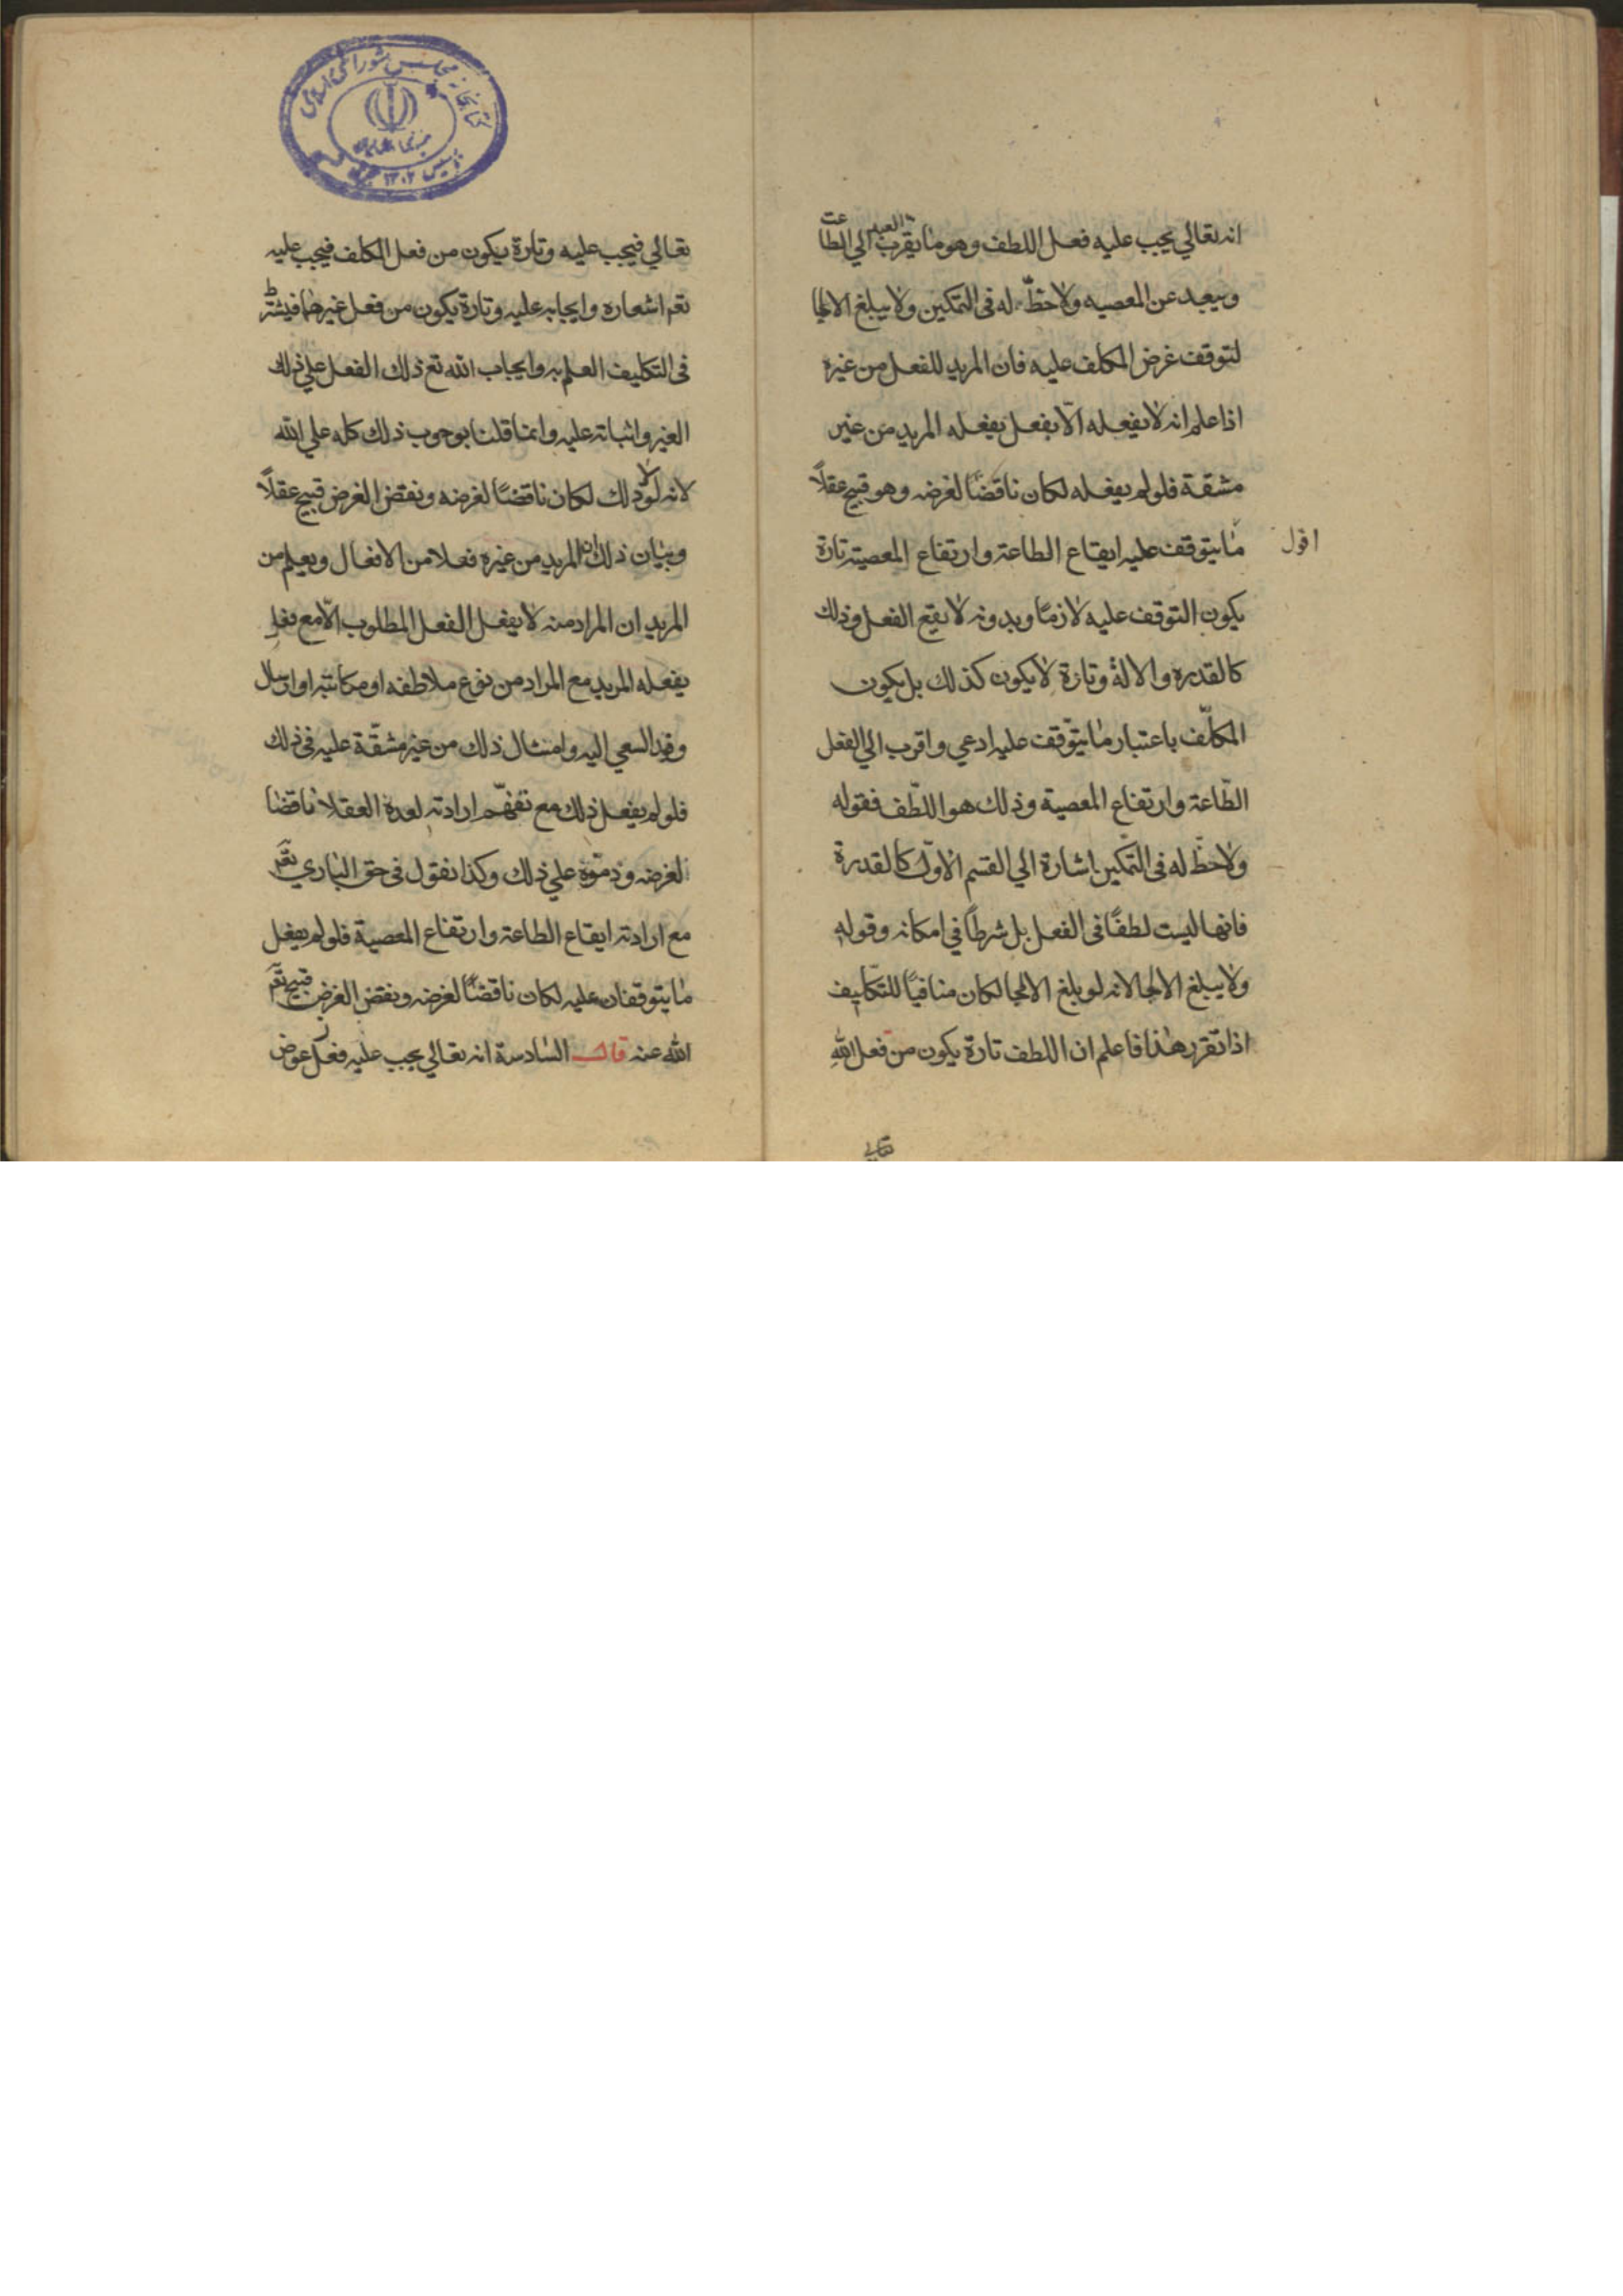 انه تعالي يجب عليه فعل اللطف وهو ما يقرب العبد الي الطاعت
ويبعد عن المعصيه ولا حظّ له فى التمكين ولا يبلغ الالجا
لتوقف غرض المكلف عليه فان المريد للفعل من غيره
اذا علم انه لا يفعله الّا بفعل يفعله المريد من غير
مشقة فلو لم يفعله لكان ناقضًا لغرضه وهو قبيح عقلاً
اقول
ما يتوقف عليه ايقاع الطاعة وارتفاع المعصية تارة
يكون التوقف عليه لازمًا وبدونه لا يقع الفعل وذلك
كالقدره والالة وتارة لا يكون كذلك بل يكون
المكلّف باعتبار ما يتوّقف عليه ادعي واقرب الي الفعل
الطّاعة وارتفاع المعصية وذلك هو اللّطف فقوله
ولا حظّ له فى التّمكين اشارة الي القسم الاوّل كالقدرة
فانها ليست لطفًا فى الفعل بل شرطاً في امكانه وقوله
ولا يبلغ الالجا لانه لو بلغ الالجا لكان منافيًا للتكليف
اذا تقرر هذا فاعلم ان اللطف تارة يكون من فعل الله
تعالي
تعالي فيجب عليه وتارة يكون من فعل المكلف فيجب عليه
تعم اشعاره وايجابه عليه وتارة يكون من فعل غيرهما فيشترط
فى التكليف العلم به وايجاب الله تع ذلك الفعل علي ذلك
الغير واثباته عليه وانما قلنا بوجوب ذلك كله علي الله
لانه لولا ذلك لكان ناقضًا لغرضه ونقض الغرض قبيح عقلاً
وبيان ذلك ان المريد من غيره فعلا من الافعال ويعلم من
المريد ان المراد منه لا يفعل الفعل المطلوب الّا مع فعل
يفعله المريد مع المراد من نوع ملاطفه او مكاتبه او ارسال
السعي اليه وامتثال ذلك من غير مشقّة عليه فى ذلك
فلو لم يفعل ذلك مع ارادته لعده العقلا ناقضا
لغرضه وذمّوه علي ذلك وكذا نقول فى حق الباري تعم
مع ارادته ايقاع الطاعة وارتفاع المعصية فلو لم يفعل
ما يتوقفان عليه لكان ناقضًا لغرضه ونقض الغرض قبيح تعم
الله عنه قال السادسة انه تعالي يجب عليه فعل عوض
كتابخانه مجلس شوراى اسلامى
تأسيس ١٣٠٢